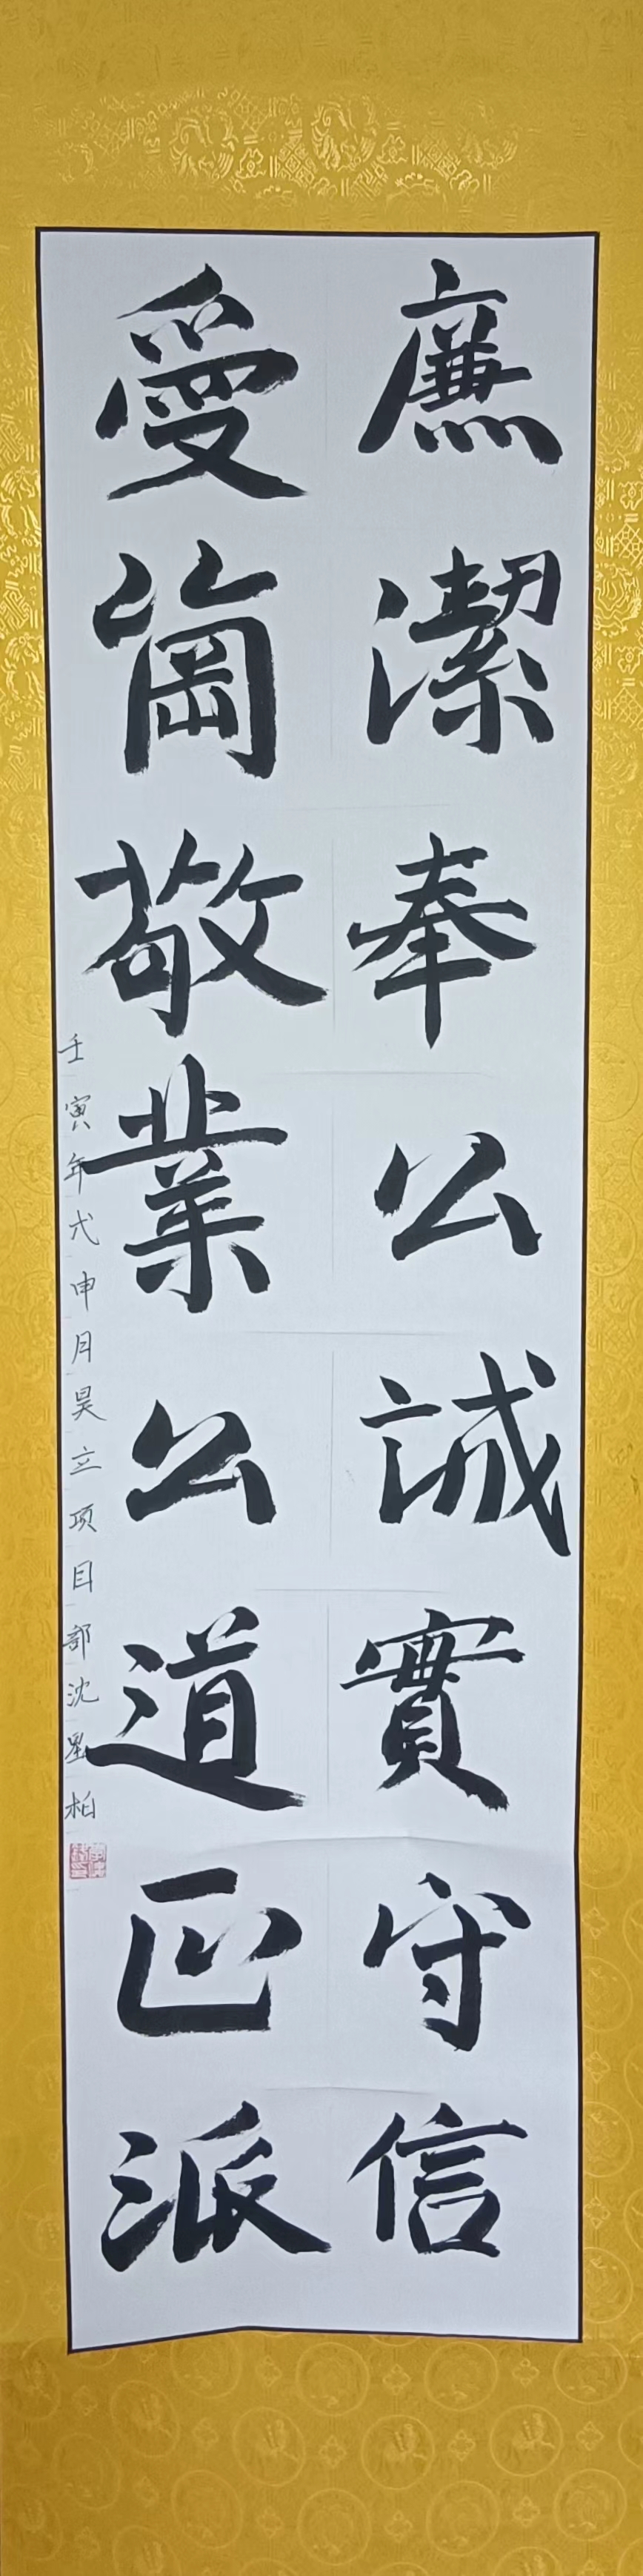 廉潔奉公誠實守信
受崗敬業公道正派
壬寅年戊申月昊立项目部沈柏